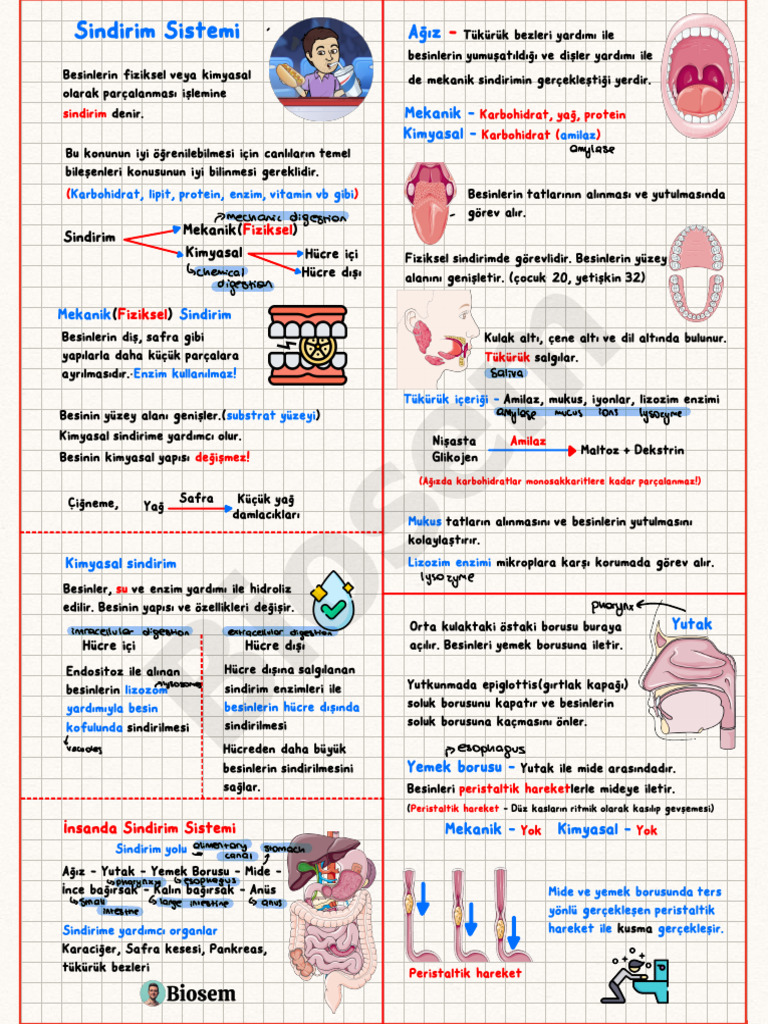 Sindirim Sistemi
Besinlerin fiziksel veya kimyasal
olarak parçalanması işlemine
sindirim denir.
Bu konunun iyi öğrenilebilmesi için canlıların temel
bileşenleri konusunun iyi bilinmesi gereklidir.
(Karbohidrat, lipit, protein, enzim, vitamin vb gibi)
mechanic digestion
Sindirim
Mekanik(Fiziksel)
Kimyasal
Hücre içi
Hücre dışı
chemical
digestion
Mekanik(Fiziksel) Sindirim
Besinlerin diş, safra gibi
yapılarla daha küçük parçalara
ayrılmasıdır.·Enzim kullanılmaz!
Besinin yüzey alanı genişler.(substrat yüzeyi)
Kimyasal sindirime yardımcı olur.
Besinin kimyasal yapısı değişmez!
Çiğneme,
Yağ
Safra
Küçük yağ
damlacıkları
Kimyasal sindirim
Besinler, su ve enzim yardımı ile hidroliz
edilir. Besinin yapısı ve özellikleri değişir.
intracellular digestion
Hücre içi
Endositoz ile alınan
besinlerin lizozom
yardımıyla besin
kofulunda sindirilmesi
extracellular digestion
Hücre dışı
Hücre dışına salgılanan
sindirim enzimleri ile
besinlerin hücre dışında
sindirilmesi
Hücreden daha büyük
besinlerin sindirilmesini
sağlar.
İnsanda Sindirim Sistemi
Sindirim yolu
alimentary
canal
stomach
Ağız - Yutak - Yemek Borusu - Mide -
pharynx
esophagus
İnce bağırsak - Kalın bağırsak - Anüs
small
intestine
large intestine
anus
Sindirime yardımcı organlar
Karaciğer, Safra kesesi, Pankreas,
tükürük bezleri
Biosem
Ağız - Tükürük bezleri yardımı ile
besinlerin yumuşatıldığı ve dişler yardımı ile
de mekanik sindirimin gerçekleştiği yerdir.
Mekanik - Karbohidrat, yağ, protein
Kimyasal - Karbohidrat (amilaz)
amylase
Besinlerin tatlarının alınması ve yutulmasında
görev alır.
Fiziksel sindirimde görevlidir. Besinlerin yüzey
alanını genişletir. (çocuk 20, yetişkin 32)
Kulak altı, çene altı ve dil altında bulunur.
Tükürük salgılar.
saliva
Tükürük içeriği - Amilaz, mukus, iyonlar, lizozim enzimi
amylase mucus ions lysozyme
Nişasta
Glikojen
Amilaz
Maltoz + Dekstrin
(Ağızda karbohidratlar monosakkaritlere kadar parçalanmaz!)
Mukus tatların alınmasını ve besinlerin yutulmasını
kolaylaştırır.
Lizozim enzimi mikroplara karşı korumada görev alır.
lysozyme
pharynx
Yutak
Orta kulaktaki östaki borusu buraya
açılır. Besinleri yemek borusuna iletir.
Yutkunmada epiglottis(gırtlak kapağı)
soluk borusunu kapatır ve besinlerin
soluk borusuna kaçmasını önler.
esophagus
Yemek borusu - Yutak ile mide arasındadır.
Besinleri peristaltik hareketlerle mideye iletir.
(Peristaltik hareket - Düz kasların ritmik olarak kasılıp gevşemesi)
Mekanik - Yok Kimyasal - Yok
Mide ve yemek borusunda ters
yönlü gerçekleşen peristaltik
hareket ile kusma gerçekleşir.
Peristaltik hareket
Biosem